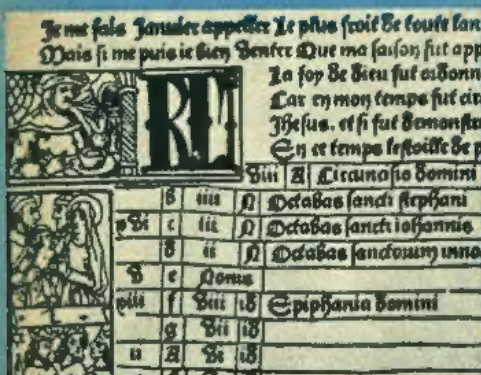 Je me fais Januier appeller Le plus froit de toute lan
Mais si me puis ie bien venter Que ma saison fut app
La foy de dieu fut
Car en mon temps fut cir
Jhesus. et si fut demonstra
En ce temps lestoille de p
KL
viii A Circuncisio domini
b iiii N Octabas sancti stephani
xvi c iii N Octabas sancti iohannis
d ii N Octabas sanctorum inno
v e Nonus
xiii f viii id Epiphania domini
g vii id
ii A vi id